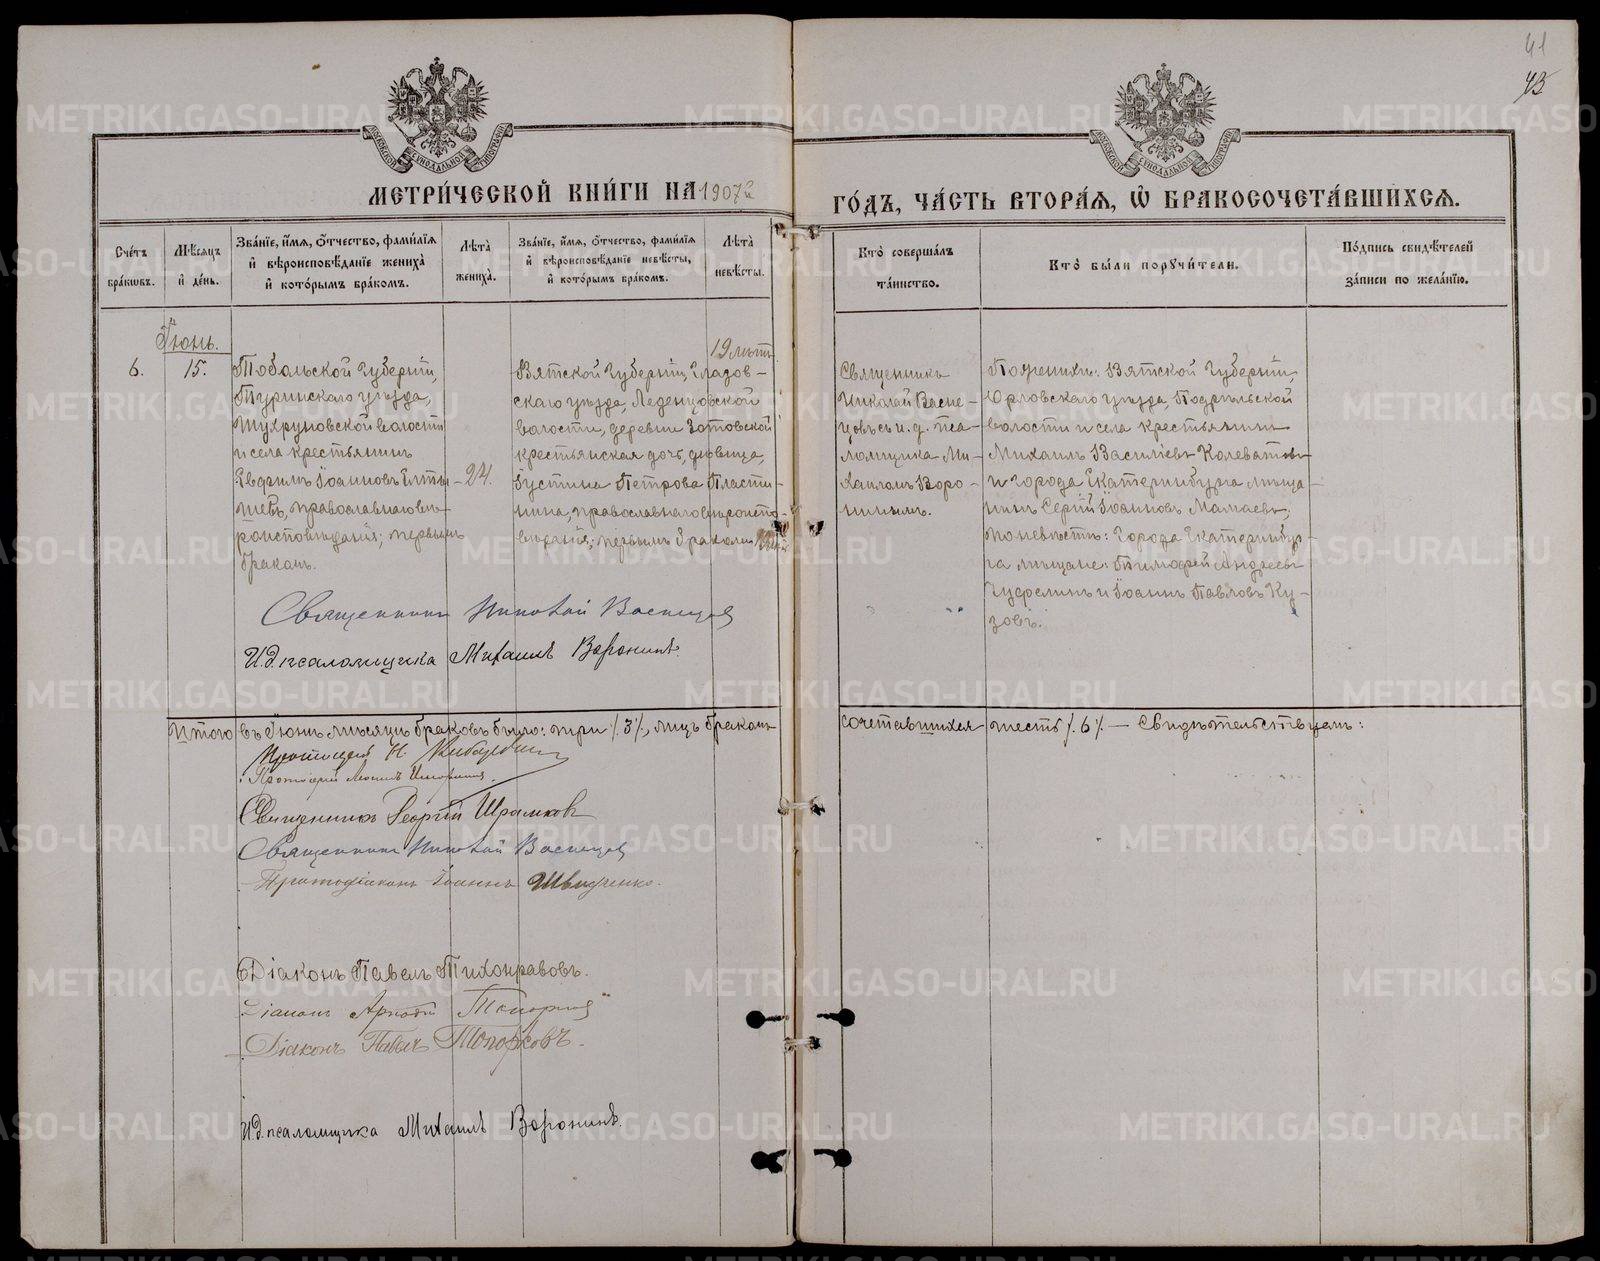 41
43
МОСКОВСКОЙ СѴНОДАЛЬНОЙ ТИПОГРАФІИ
МОСКОВСКОЙ СѴНОДАЛЬНОЙ ТИПОГРАФІИ
МЕТРИ́ЧЕСКОЙ КНИ́ГИ НА 1907й ГО́ДЪ, ЧА́СТЬ ВТОРА́Я, Ѽ БРАКОСОЧЕТА́ВШИХСЯ.
Сче́тъ бра́кѡвъ.
Мѣ́сяцъ и́ де́нь.
Зва́нїе, и́мя, ѻ҆́тчество, фами́лїя и́ вѣроисповѣ́данїе жениха̀ и́ кото́рымъ бра́комъ.
Лѣ́та̀ жениха̀.
Зва́нїе, и́мя, ѻ҆́тчество, фами́лїя и́ вѣроисповѣ́данїе невѣ́сты, и́ кото́рымъ бра́комъ.
Лѣ́та̀ невѣ́сты.
Кто̀ соверша́лъ та́инство.
Кто̀ бы́ли порꙋчи́тели.
По́дпись свидѣ́телей за́писи по жела́нїю.
Іюнь.
6.
15.
Тобольской Губерніи,
Туринскаго уѣзда,
Шухруповской волости
и села крестьянинъ
Евфимъ Іоанновъ Елты-
шевъ, православнаго вѣ-
роисповѣданія; первымъ
бракомъ.
24.
19 лѣтъ
Вятской Губерніи, Глазов-
скаго уѣзда, Леденцовской
волости, деревни Зотовской
крестьянская дочь, дѣвица,
Іустина Петрова Пласти-
нина, православнаго вѣроиспо-
вѣданія; первымъ бракомъ
Священникъ
Николай Васне-
цовъ съ и. д. пса-
ломщика Ми-
хаиломъ Воро-
нинымъ.
По женихѣ: Вятской Губерніи,
Орловскаго уѣзда, Подрѣльской
волости и села крестьянинъ
Михаилъ Василіевъ Колеватовъ
и города Екатеринбурга мѣща-
нинъ Сергій Іоанновъ Мамаевъ;
по невѣстѣ: Города Екатеринбур-
га мѣщане: Тимофей Андреевъ
и Іоаннъ Павловъ Ку-
зовъ.
Священникъ Николай Васнецовъ
И.д. псаломщика Михаилъ Воронинъ.
Итого въ Іюнѣ мѣсяцѣ браковъ было: три /.3./, лицъ бракомъ сочетавшихся шесть /.6./. — Свидѣтельствуемъ:
Протоіерей Н.
Протоіерей
Священникъ Георгій Шрамковъ
Священникъ Николай Васнецовъ
Протодіаконъ Іоаннъ Швидченко.
Діаконъ Павелъ Тихонравовъ.
Діаконъ Аркадій
Діаконъ Павелъ Топорковъ.
И.д. псаломщика Михаилъ Воронинъ.
METRIKI.GASO-URAL.RU